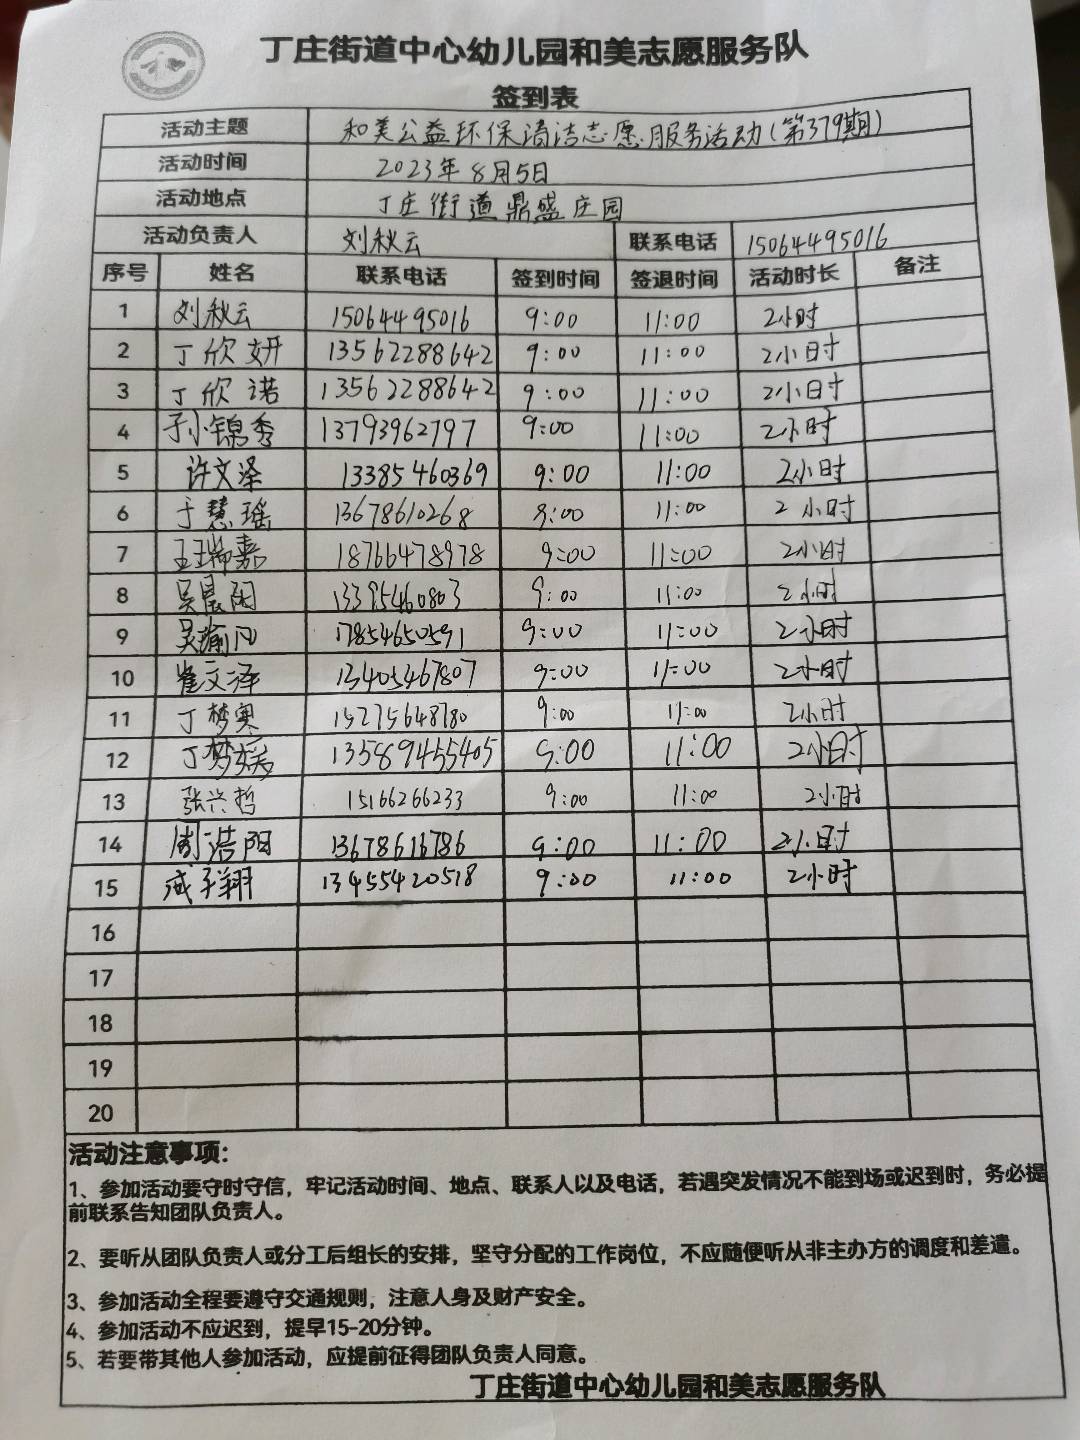 丁庄街道中心幼儿园和美志愿服务队
签到表
活动主题 和美公益环保清洁志愿服务活动(第379期)
活动时间 2023年8月5日
活动地点 丁庄街道鼎盛庄园
活动负责人 刘秋云 联系电话 15064495016
序号 姓名 联系电话 签到时间 签退时间 活动时长 备注
1 刘秋云 15064495016 9:00 11:00 2小时
2 丁欣妍 13562288642 9:00 11:00 2小时
3 丁欣诺 13562288642 9:00 11:00 2小时
4 孙锦秀 13793962797 9:00 11:00 2小时
5 许文泽 13385460369 9:00 11:00 2小时
6 于慧瑶 13678610268 9:00 11:00 2小时
7 王瑞嘉 18766478978 9:00 11:00 2小时
8 吴晨阳 13395460803 9:00 11:00 2小时
9 吴瑜凡 17854650591 9:00 11:00 2小时
10 崔文泽 13405467807 9:00 11:00 2小时
11 丁梦寒 15275648780 9:00 11:00 2小时
12 丁梦瑶 13589455405 9:00 11:00 2小时
13 张兴哲 15166266233 9:00 11:00 2小时
14 周浩阳 13678616786 9:00 11:00 2小时
15 咸子翔 13455420518 9:00 11:00 2小时
16
17
18
19
20
活动注意事项：
1、参加活动要守时守信，牢记活动时间、地点、联系人以及电话，若遇突发情况不能到场或迟到时，务必提
前联系告知团队负责人。
2、要听从团队负责人或分工后组长的安排，坚守分配的工作岗位，不应随便听从非主办方的调度和差遣。
3、参加活动全程要遵守交通规则，注意人身及财产安全。
4、参加活动不应迟到，提早15-20分钟。
5、若要带其他人参加活动，应提前征得团队负责人同意。
丁庄街道中心幼儿园和美志愿服务队